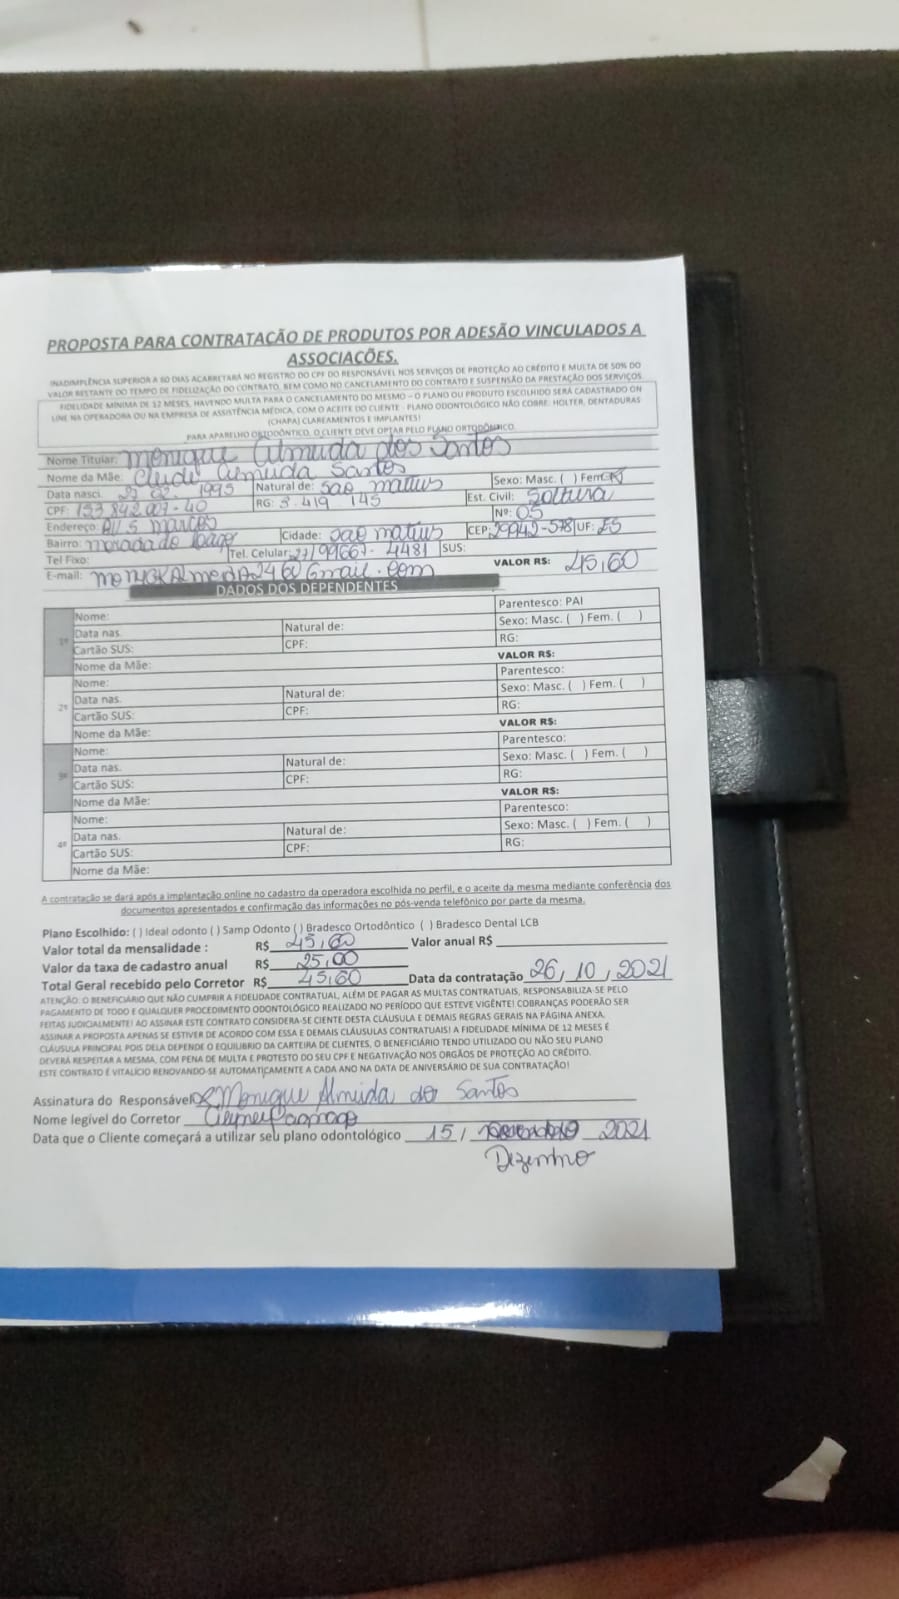 PROPOSTA PARA CONTRATAÇÃO DE PRODUTOS POR ADESÃO VINCULADOS A
ASSOCIAÇÕES.
INADIMPLÊNCIA SUPERIOR A 60 DIAS ACARRETARÁ NO REGISTRO DO CPF DO RESPONSÁVEL NOS SERVIÇOS DE PROTEÇÃO AO CRÉDITO E MULTA DE 50% DO
VALOR RESTANTE DO TEMPO DE FIDELIZAÇÃO DO CONTRATO, BEM COMO NO CANCELAMENTO DO CONTRATO E SUSPENSÃO DA PRESTAÇÃO DOS SERVIÇOS.
FIDELIDADE MÍNIMA DE 12 MESES, HAVENDO MULTA PARA O CANCELAMENTO DO MESMO – O PLANO OU PRODUTO ESCOLHIDO SERÁ CADASTRADO ON
LINE NA OPERADORA OU NA EMPRESA DE ASSISTÊNCIA MÉDICA, COM O ACEITE DO CLIENTE - PLANO ODONTOLÓGICO NÃO COBRE: HOLTER, DENTADURAS
(CHAPA) CLAREAMENTOS E IMPLANTES!
PARA APARELHO ORTODÔNTICO, O CLIENTE DEVE OPTAR PELO PLANO ORTODÔNICO.
Nome Titular: Monique Almeida dos Santos
Nome da Mãe: Cleide Almeida Santos
Sexo: Masc. ( ) Fem.(X)
Data nasci. 1995 Natural de: São Mateus Est. Civil: Solteira
CPF: 153 842 007-40 RG: 3.419 145
Endereço: S Marcos Nº: 05
Bairro: Morada do Cidade: São Mateus CEP: 29942-578 UF: ES
Tel Fixo: Tel. Celular: 27/99667-4481 SUS:
E-mail: VALOR R$: 45,60
DADOS DOS DEPENDENTES
1º Nome: Parentesco: PAI
Data nas. Natural de: Sexo: Masc. ( ) Fem. ( )
Cartão SUS: CPF: RG:
Nome da Mãe: VALOR R$:
2º Nome: Parentesco:
Data nas. Natural de: Sexo: Masc. ( ) Fem. ( )
Cartão SUS: CPF: RG:
Nome da Mãe: VALOR R$:
3º Nome: Parentesco:
Data nas. Natural de: Sexo: Masc. ( ) Fem. ( )
Cartão SUS: CPF: RG:
Nome da Mãe: VALOR R$:
4º Nome: Parentesco:
Data nas. Natural de: Sexo: Masc. ( ) Fem. ( )
Cartão SUS: CPF: RG:
Nome da Mãe:
A contratação se dará após a implantação online no cadastro da operadora escolhida no perfil, e o aceite da mesma mediante conferência dos
documentos apresentados e confirmação das informações no pós-venda telefônico por parte da mesma.
Plano Escolhido: ( ) Ideal odonto ( ) Samp Odonto ( ) Bradesco Ortodôntico ( ) Bradesco Dental LCB
Valor total da mensalidade : R$ 45,60 Valor anual R$
Valor da taxa de cadastro anual R$ 25,00
Total Geral recebido pelo Corretor R$ 45,60 Data da contratação 26, 10, 2021
ATENÇÃO: O BENEFICIÁRIO QUE NÃO CUMPRIR A FIDELIDADE CONTRATUAL, ALÉM DE PAGAR AS MULTAS CONTRATUAIS, RESPONSABILIZA-SE PELO
PAGAMENTO DE TODO E QUALQUER PROCEDIMENTO ODONTOLÓGICO REALIZADO NO PERÍODO QUE ESTEVE VIGENTE! COBRANÇAS PODERÃO SER
FEITAS JUDICIALMENTE! AO ASSINAR ESTE CONTRATO CONSIDERA-SE CIENTE DESTA CLÁUSULA E DEMAIS REGRAS GERAIS NA PÁGINA ANEXA.
ASSINAR A PROPOSTA APENAS SE ESTIVER DE ACORDO COM ESSA E DEMAIS CLÁUSULAS CONTRATUAIS! A FIDELIDADE MÍNIMA DE 12 MESES É
CLÁUSULA PRINCIPAL POIS DELA DEPENDE O EQUILÍBRIO DA CARTEIRA DE CLIENTES, O BENEFICIÁRIO TENDO UTILIZADO OU NÃO SEU PLANO
DEVERÁ RESPEITAR A MESMA, COM PENA DE MULTA E PROTESTO DO SEU CPF E NEGATIVAÇÃO NOS ORGÃOS DE PROTEÇÃO AO CRÉDITO.
ESTE CONTRATO É VITALÍCIO RENOVANDO-SE AUTOMATICAMENTE A CADA ANO NA DATA DE ANIVERSÁRIO DE SUA CONTRATAÇÃO!
Assinatura do Responsável Monique Almeida dos Santos
Nome legível do Corretor
Data que o Cliente começará a utilizar seu plano odontológico 15/ 2021
Dezembro